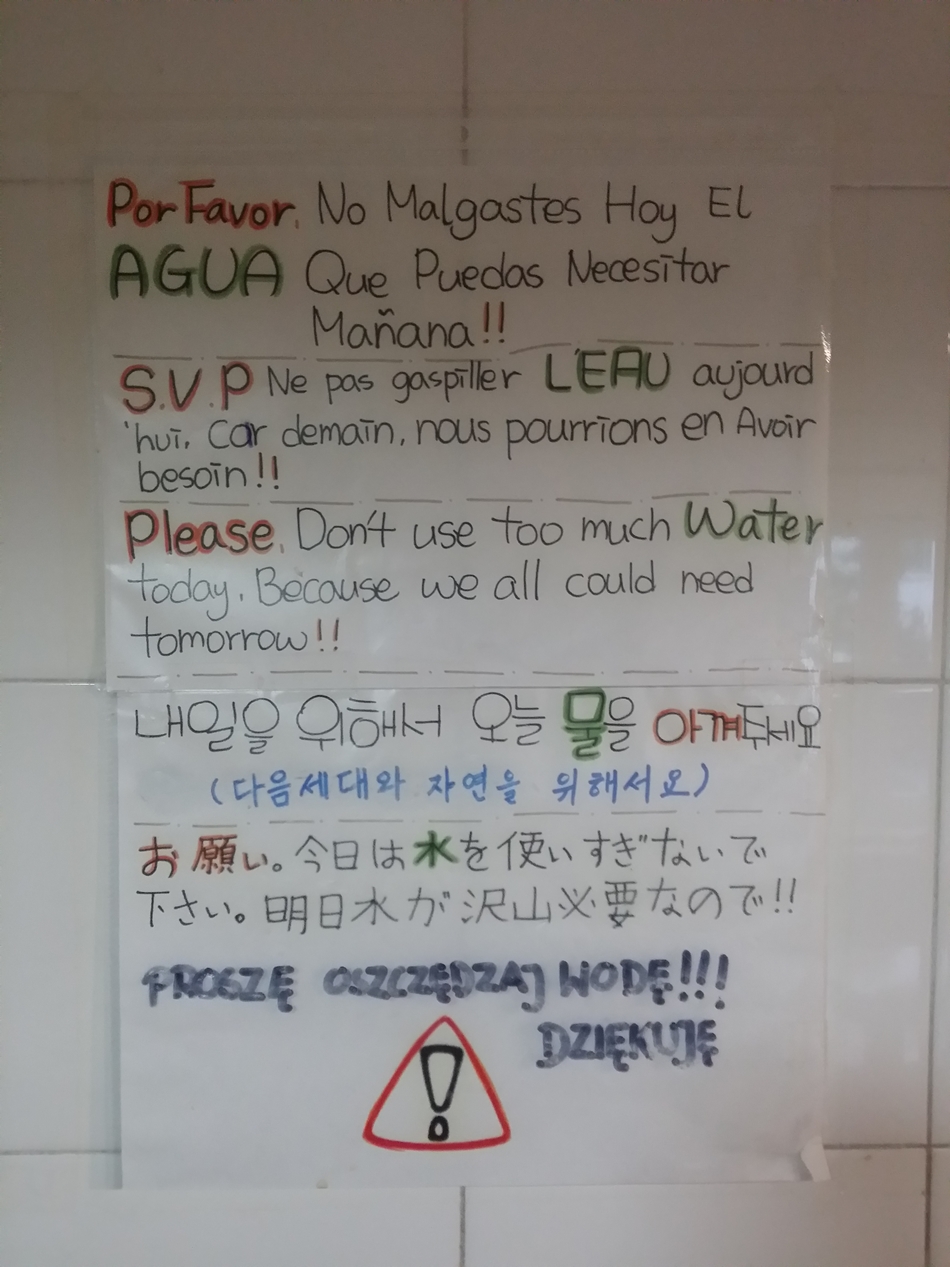 Por Favor. No Malgastes Hoy El
AGUA Que Puedas Necesitar
Mañana!!
S.V.P Ne pas gaspiller L'EAU aujourd
'hui, Car demain, nous pourrions en Avoir
besoin!!
Please. Don't use too much Water
today. Because we all could need
tomorrow!!
내일을 위해서 오늘 물을 아껴두세요
(다음세대와 자연을 위해서요)
お願い。今日は水を使いすぎないで
下さい。明日水が沢山必要なので!!
PROSZĘ OSZCZĘDZAJ WODĘ!!!
DZIĘKUJĘ
!